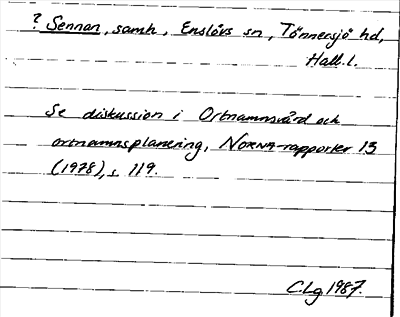 ? Sennan, samh, Enslövs sn, Tönnersjö hd,
Hall.l.
Se diskussion i Ortnamnsvård och
ortnamnsplanering, NORNA-rapporter 13
(1978), s. 119.
C.Lg 1987.